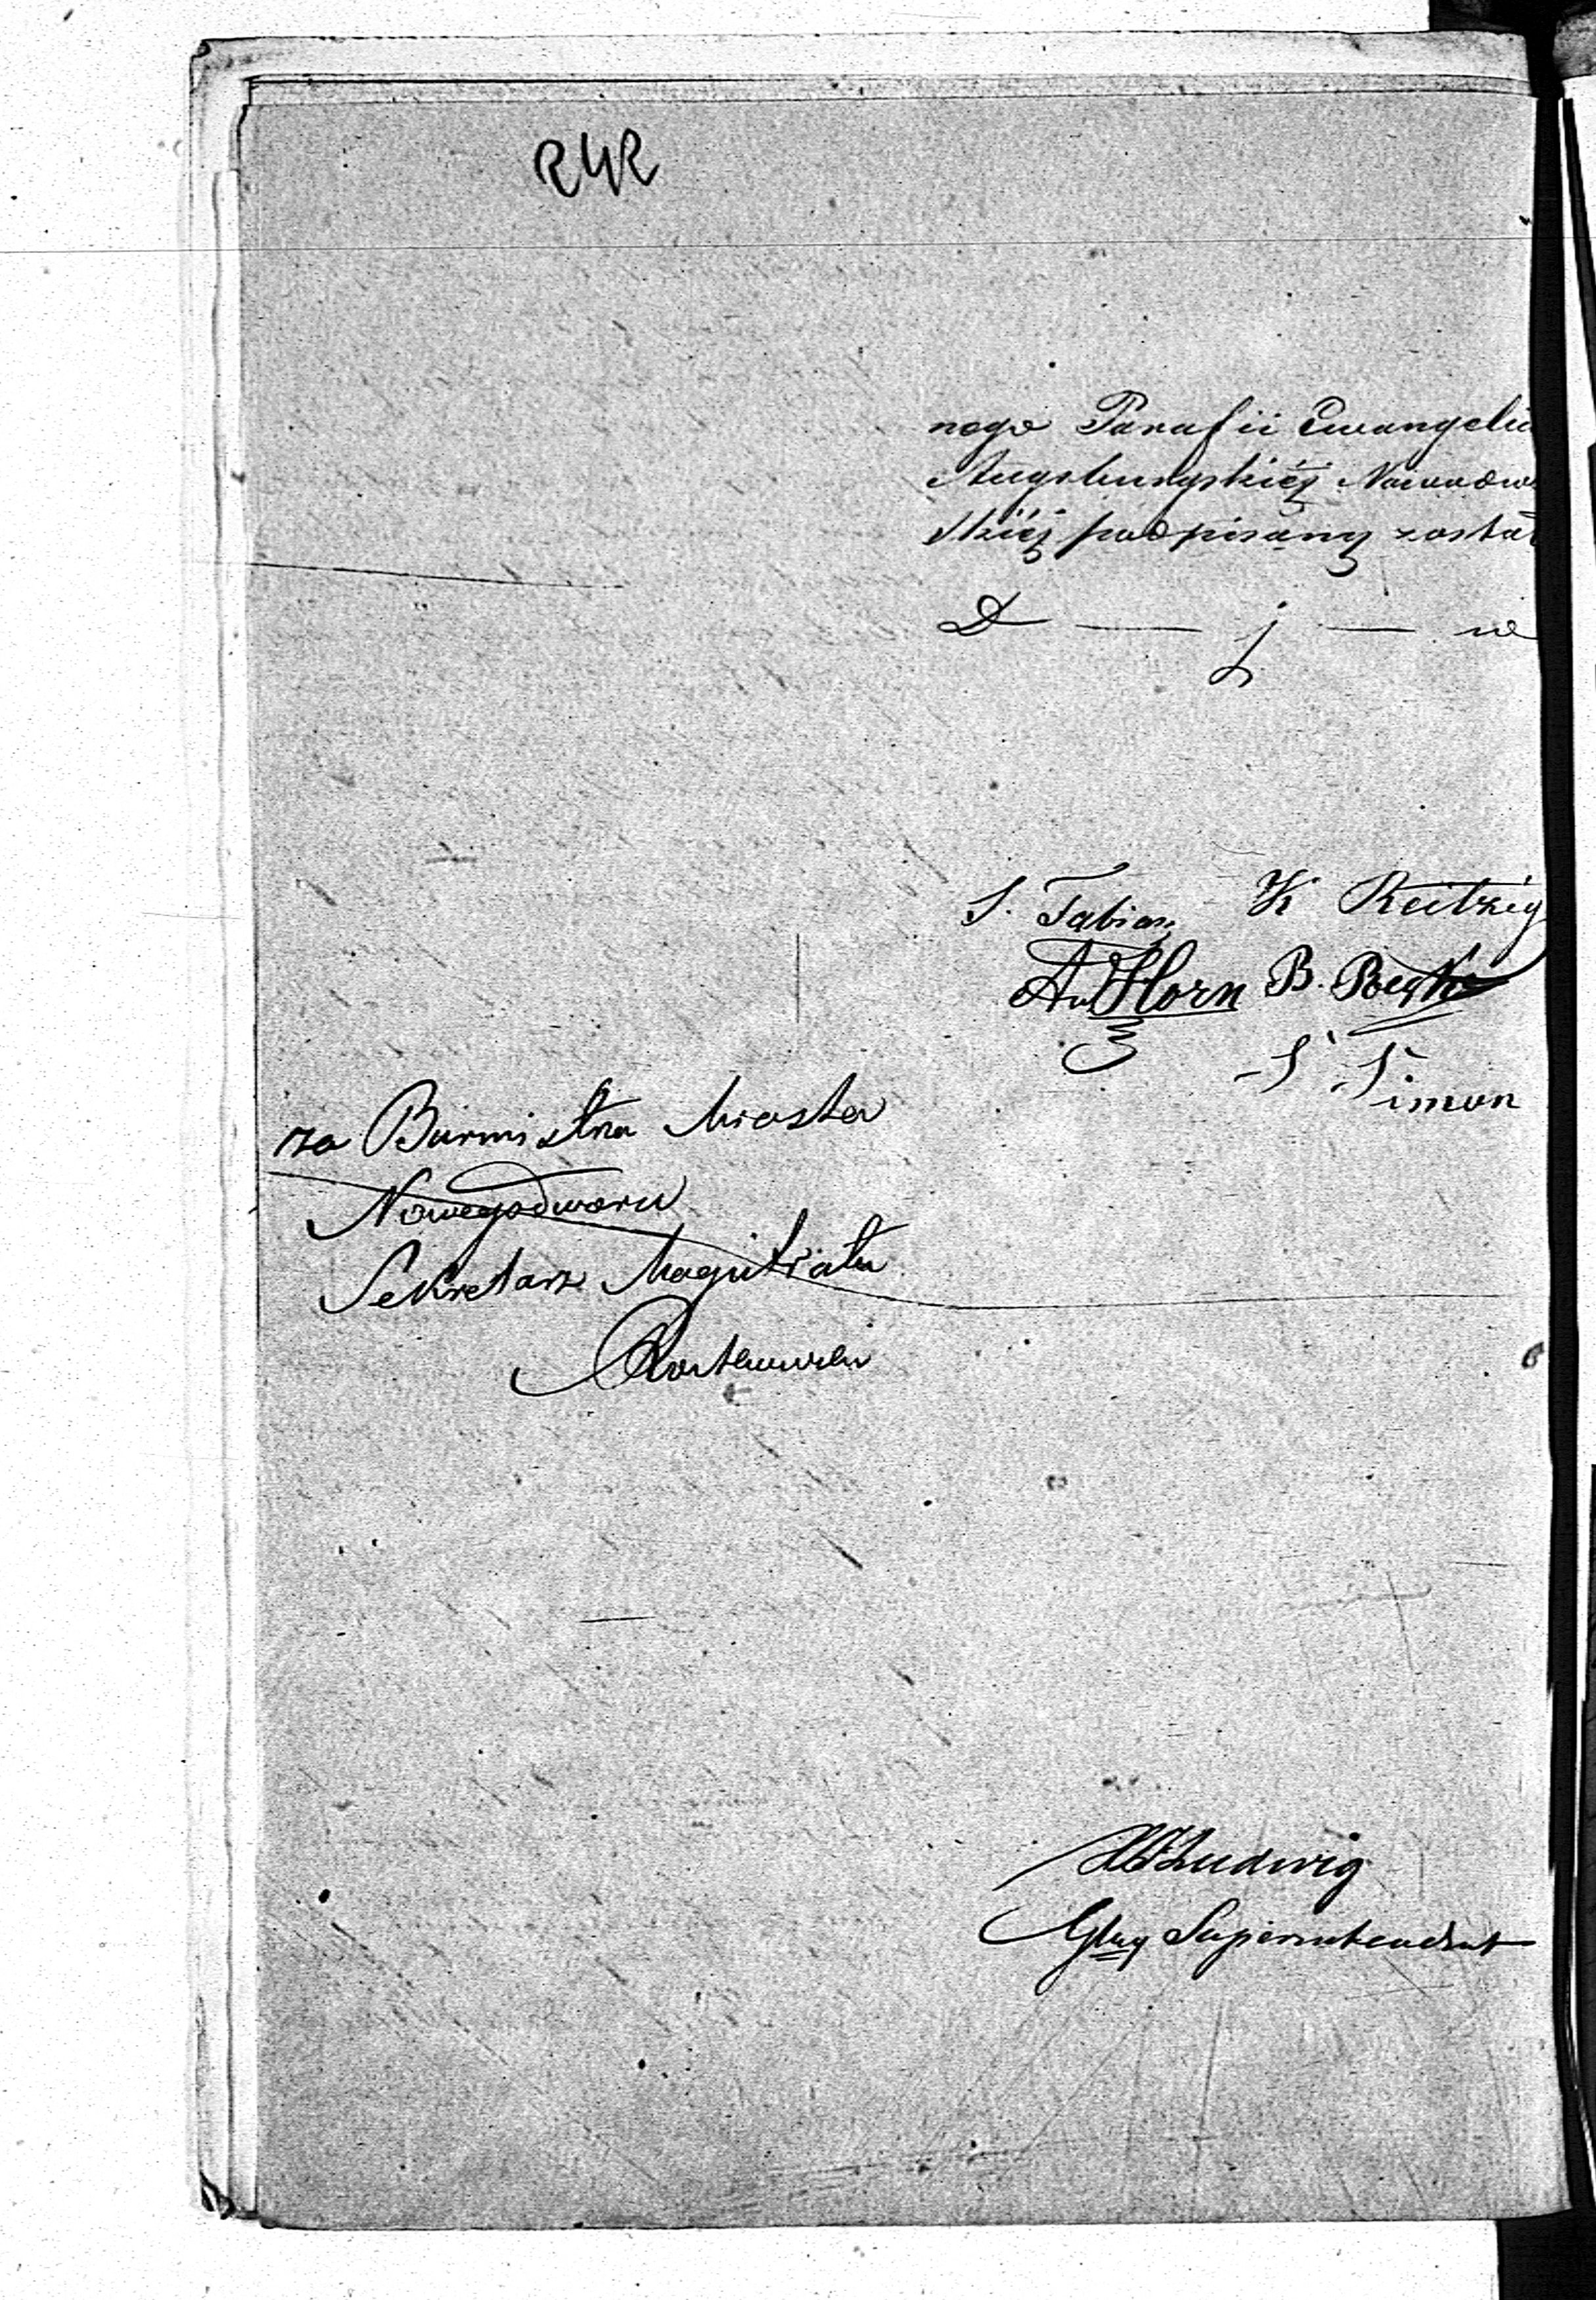 242
nego Parafii Ewangelic
Augsburgskiéj Nowodwo
skiéj podpisany został
D — j — w
S. Fabian K Reitzig
Au Horn B.
S. Simon
za Burmistrza Miasta
Nowegodworu
Sekretarz Magistratu
Ludwig
Glny Superintendent